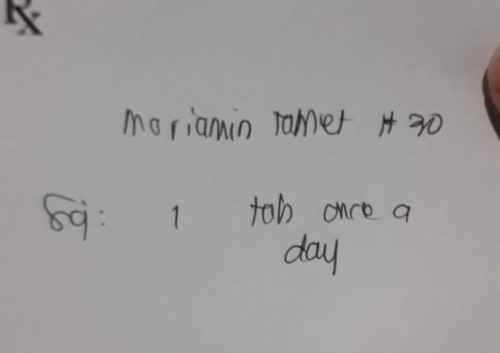 Rx
Moriamin Tamet # 30
Sig: 1 tab once a
day